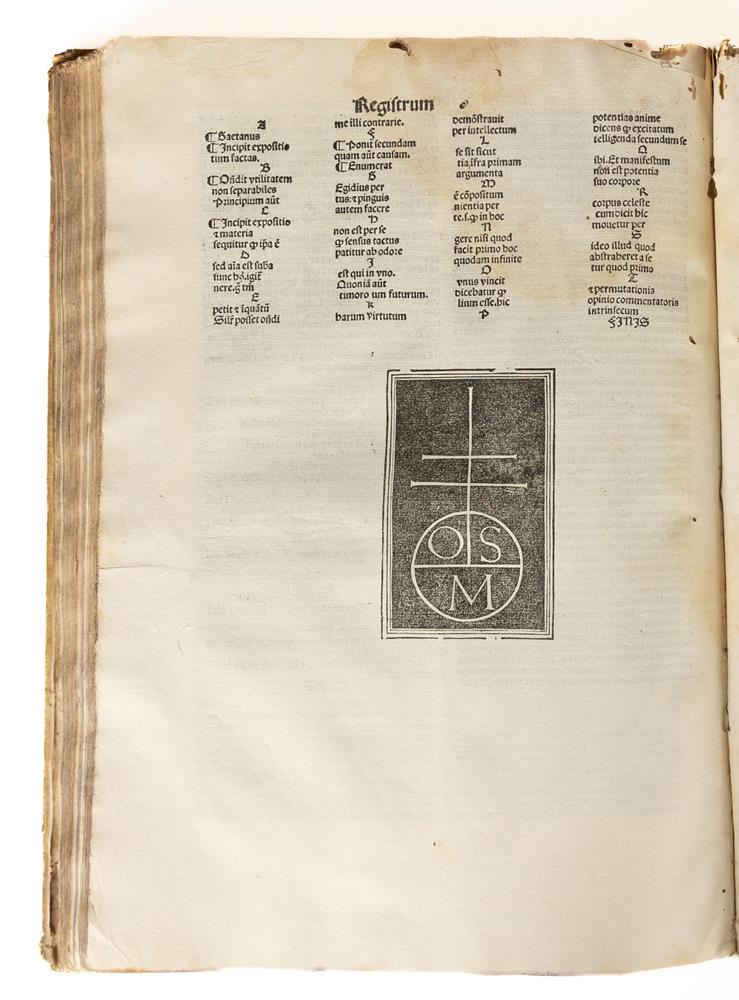 Regiſtrum
A
¶ Gaetanus
¶ Incipit expoſitio
tum factas.
B
¶ Oñdit vtilitatem
non ſeparabiles
Principium aūt
C
¶ Incipit expoſitio
⁊ materia
ſequitur ꝙ ip̄a ē
D
ſed aīa eſt ſuba
func
nere.
E
petit ⁊
Silr̄ poſſet oñdi
me illi contrarie.
F
¶ Ponit ſecundam
quam aūt cauſam.
¶ Enumerat
G
Egidius per
tus:⁊ pinguis
autem facere
H
non eſt per ſe
ꝙ ſenſus tactus
patitur ab odore
I
eſt qui in vno.
Quoniā aūt
timoro um futurum.
K
harum virtutum
demōſtrauit
per intellectum
L
ſe ſit ſicut
tia,ifra primam
argumenta
M
ē cōpoſitum
nientia per
te.ſ.ꝙ in hoc
N
gere niſi quod
facit primo hoc
quodam infinite
O
vnus vincit
dicebatur ꝙ
lium eſſe.hic
P
potentias anime
dicens ꝙ excitatum
telligenda secundum ſe
Q
ibi.Et manifeſtum
eſt potentia
ſuo corpore
R
corpus celeſte
cum dicit hic
mouetur per
S
ideo illud quod
abſtraheret a ſe
tur quod primo
T
⁊ permutationis
opinio commentatoris
intrinſecum
FINIS
O S
M